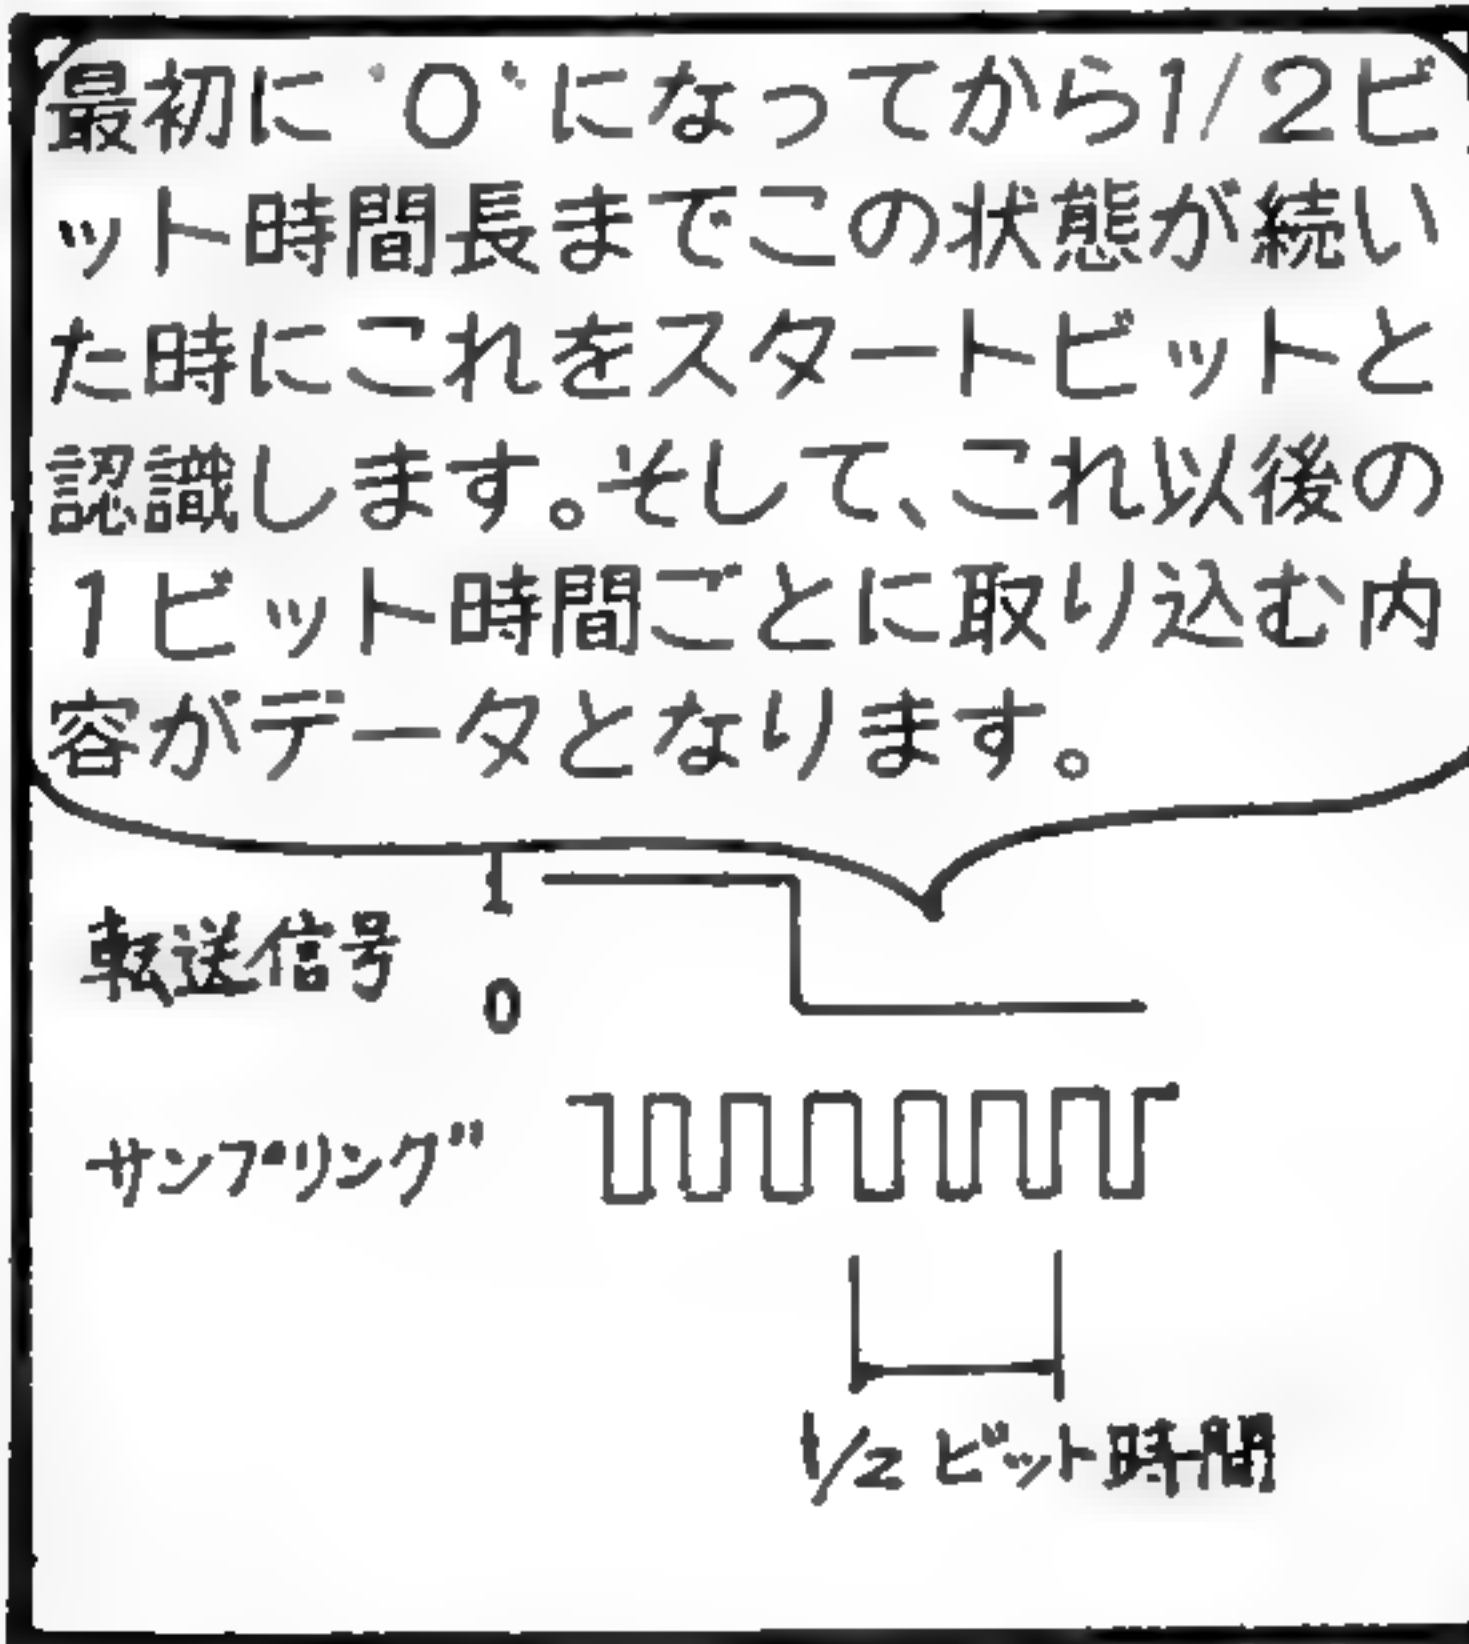 最初に“0”になってから1/2ビ
ット時間長までこの状態が続い
た時にこれをスタートビットと
認識します。そして、これ以後の
1ビット時間ごとに取り込む内
容がデータとなります。
転送信号
1
0
サンプリング
1/2 ビット時間